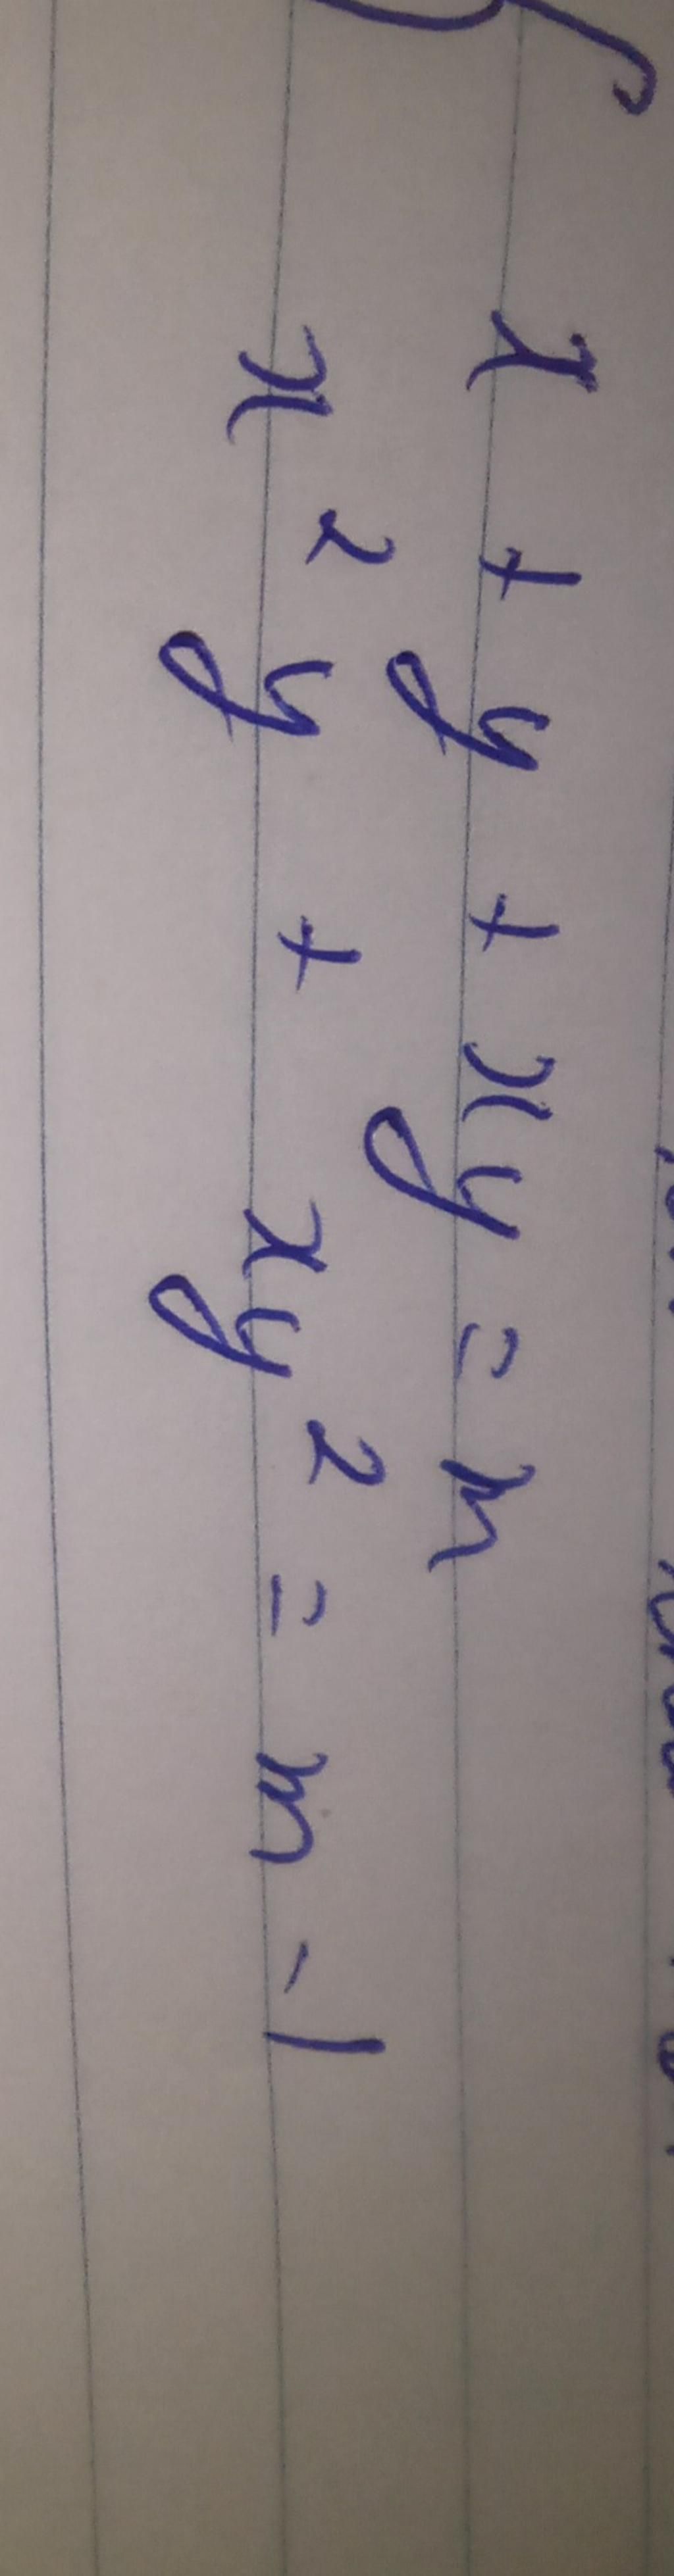 x + y + xy = m
x²y + xy² = m - 1